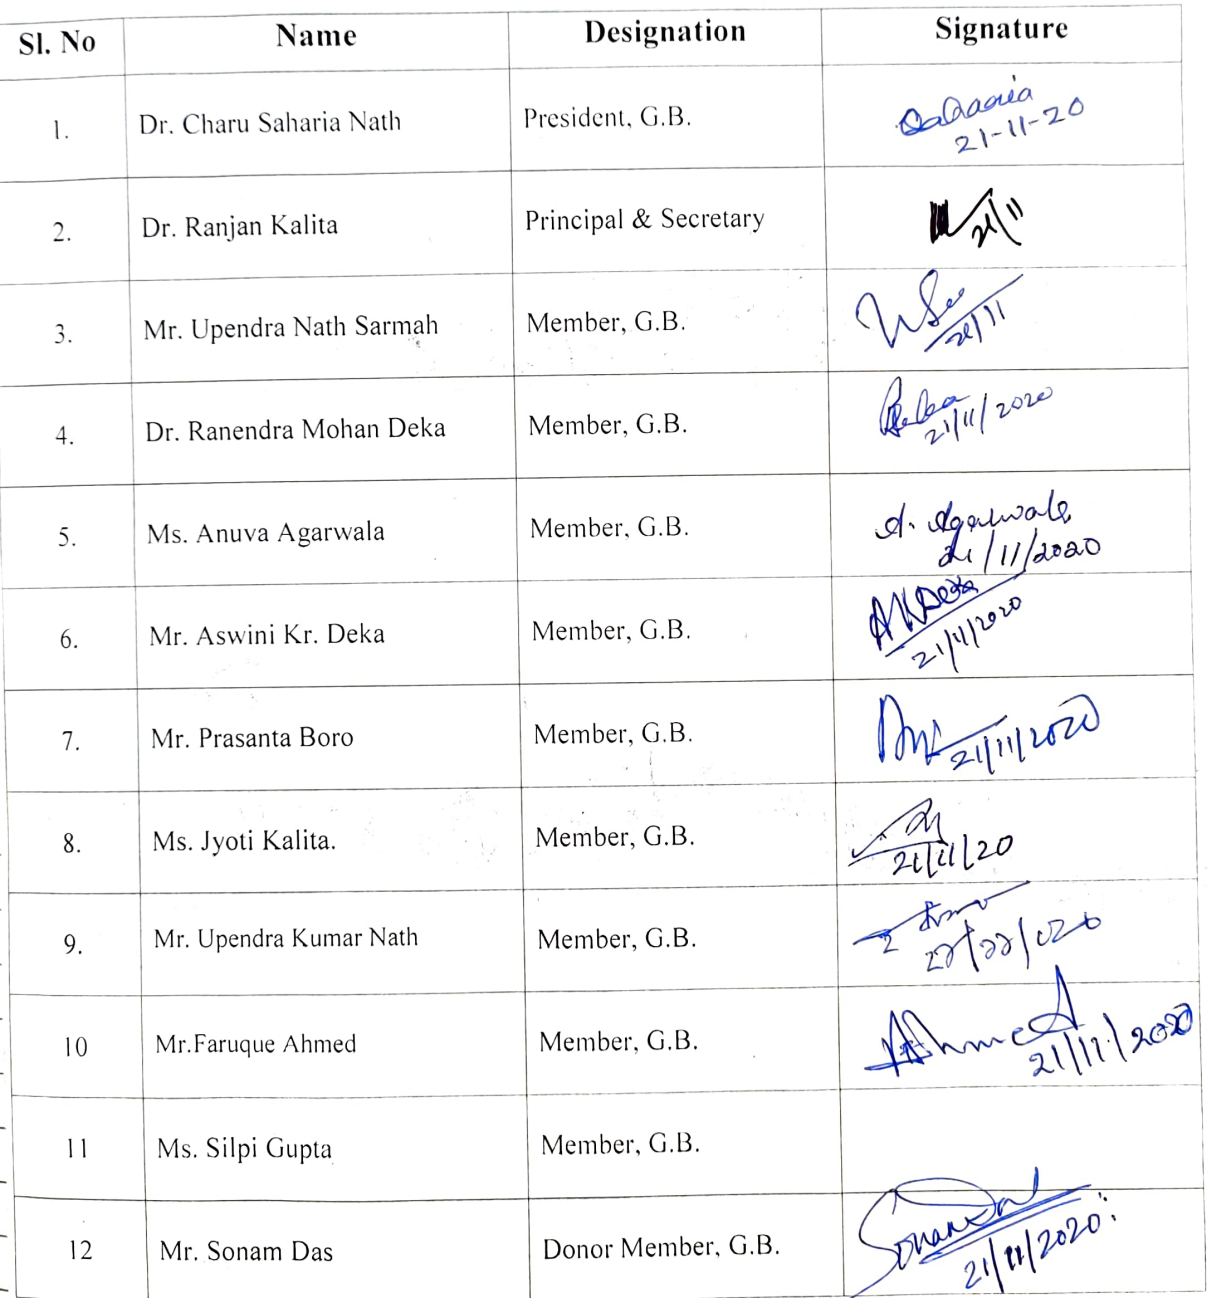 Sl. No Name Designation Signature
1. Dr. Charu Saharia Nath President, G.B. Saharia
21-11-20
2. Dr. Ranjan Kalita Principal & Secretary 21/11
3. Mr. Upendra Nath Sarmah Member, G.B.
21/11
4. Dr. Ranendra Mohan Deka Member, G.B. Deka
21/11/2020
5. Ms. Anuva Agarwala Member, G.B. A. Agarwala
21/11/2020
6. Mr. Aswini Kr. Deka Member, G.B. AKDeka
21/11/2020
7. Mr. Prasanta Boro Member, G.B. 21/11/2020
8. Ms. Jyoti Kalita. Member, G.B.
21/11/20
9. Mr. Upendra Kumar Nath Member, G.B.
10 Mr.Faruque Ahmed Member, G.B. Ahmed
21/11/2020
11 Ms. Silpi Gupta Member, G.B.
12 Mr. Sonam Das Donor Member, G.B. Sonam Das
21/11/2020